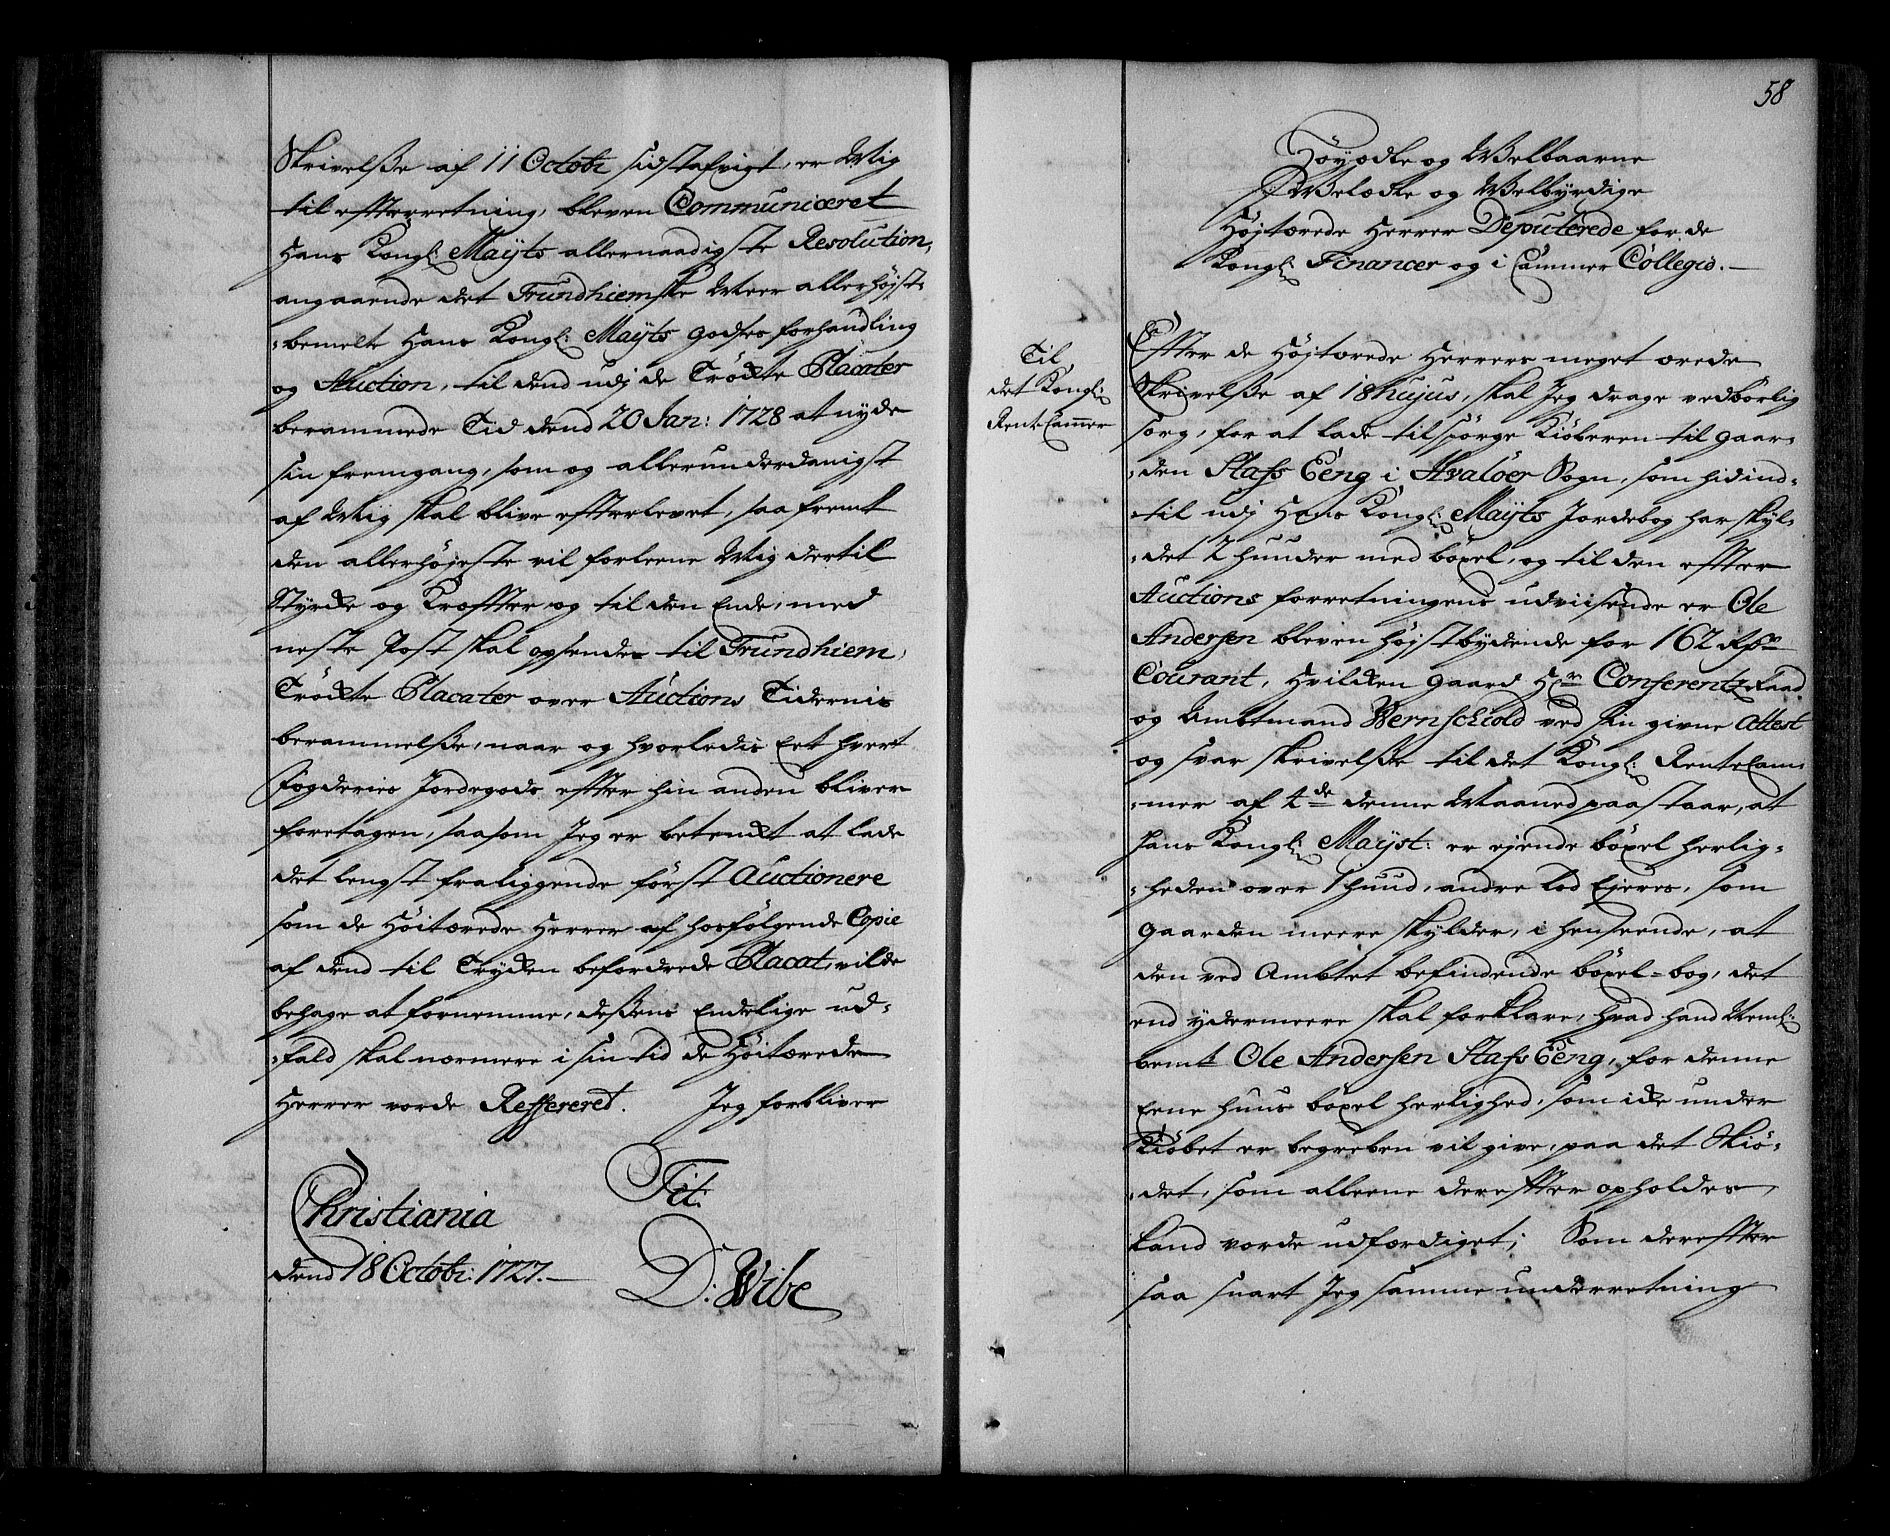 Skrivelße af 11 Octobr sidstafvigt, er Mig
til efterretning, bleven Communiceret
Hans Kongl: Mayts allernaadigste Resolution,
angaaende det Trundhiemske Meer allerhøjst-
bemelte Hans Kongl: Mayts godtes forhandling
og Auction, til dend udj de Trøckte Placater
berammede Tid dend 20 Jan: 1728 at nyde
sin fremgang, som og allerunderdanigst
af Mig skal blive efterlevet, saa fremt
den allerhøjeste vil forleene Mig dertil
Styrcke og Kræffter og til den Ende, med
neste Post skal opsendes til Trundhiem,
Trøckte Placater over Auctions Tidernis
berammelße, naar og hvorledis Eet hvert
Fogderies Jordegods efter hin anden bliver
foretagen, saasom Jeg er betenckt at lade
det lengst fraliggende først Auctionere
som de Høitærede Herrer af hosfølgende Copie
af dend til Trycken befordrede Placat, vilde
behage at fornemme, deßens Endelige ud-
fald skal nærmere i sin tid de Høitærede
Herrer vorde Reffereret. Jeg forbliver
Tit:
Christiania
dend 18 Octobr: 1727.
D: Wibe
58
Høyædle og Welbaarne
Welædle og Welbyrdige
Højtærede Herrer Deputerede for de
Kongl: Financer og i Cammer Collegio.
Til
det Kongl:
RenteCammer
Efter de Højtærede Herrers meget ærede
Skrivelße af 18 hujus, skal Jeg drage vedbørlig
sorg, for at lade tilspørge Kiøberen til gaar-
den Stafs Eeng i Hvaløer Sogn, som hidind-
til udj Hans Kongl: Mayts Jordebog har skyl-
det 2 huuder med bøxel, og til den efter
Auctions forretningens udviisende er Ole
Andersen bleven højstbydende for 162 Rdr
Courant, Hvilcken gaard Hr Conferentz Raad
og Ambtmand Wernschiold ved sin givne Attest
og svar skrivelße til det Kongl: RenteCam-
mer af 2de denne Maaned paastaar, at
Hans Kongl: Mayst: er ejende bøxel herlig-
heden over 1 huud, andre Lod Ejeres, som
gaarden meere skylder, i henseende, at
den ved Ambtet befindende bøxel-bog, det
end ydermeere skal forklare, hvad hand Neml:
bemt Ole Andersen Stafs Eeng, for denne
Eene huus bøxel herlighed, som icke under
Kiøbet er begreben vil give, paa det Skiø-
det, som alleene derefter opholdes,
kand vorde udfærdiget; Som derefter
saa snart Jeg samme underretning